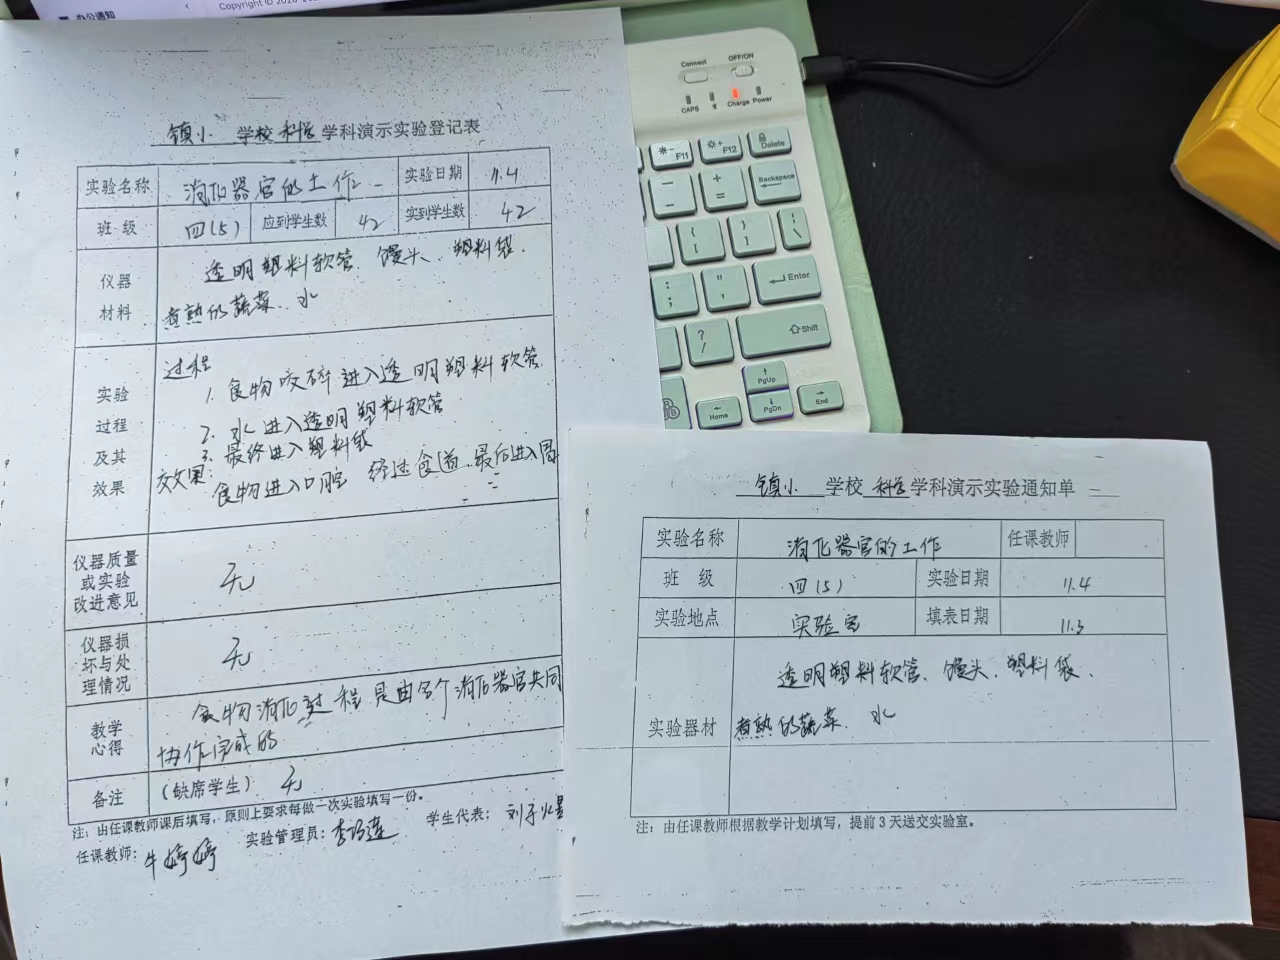 办公通知
Copyright © 2020
Connect
OFF/ON
CAPS
Charge
Power
F11
F12
Delete
Backspace
Enter
Shift
PgUp
Home
PgDn
End
镇小 学校 科学 学科演示实验登记表
实验名称 消化器官的工作 实验日期 11.4
班级 四(5) 应到学生数 42 实到学生数 42
仪器材料 透明塑料软管、馒头、塑料袋、
煮熟的蔬菜、水
实验过程及其效果
过程
1. 食物咬碎进入透明塑料软管
2. 水进入透明塑料软管
3. 最终进入塑料袋
效果:
食物进入口腔 经过食道、最后进入胃
仪器质量或实验改进意见 无
仪器损坏与处理情况 无
教学心得 食物消化过程是由各个消化器官共同
协作完成的
备注 (缺席学生) 无
注:由任课教师课后填写,原则上要求每做一次实验填写一份。
任课教师:牛婷婷 实验管理员:李 莲 学生代表:刘子
镇小 学校 科学 学科演示实验通知单
实验名称 消化器官的工作 任课教师
班级 四(5) 实验日期 11.4
实验地点 实验室 填表日期 11.3
实验器材 透明塑料软管、馒头、塑料袋、
煮熟的蔬菜、水
注:由任课教师根据教学计划填写,提前3天送交实验室。